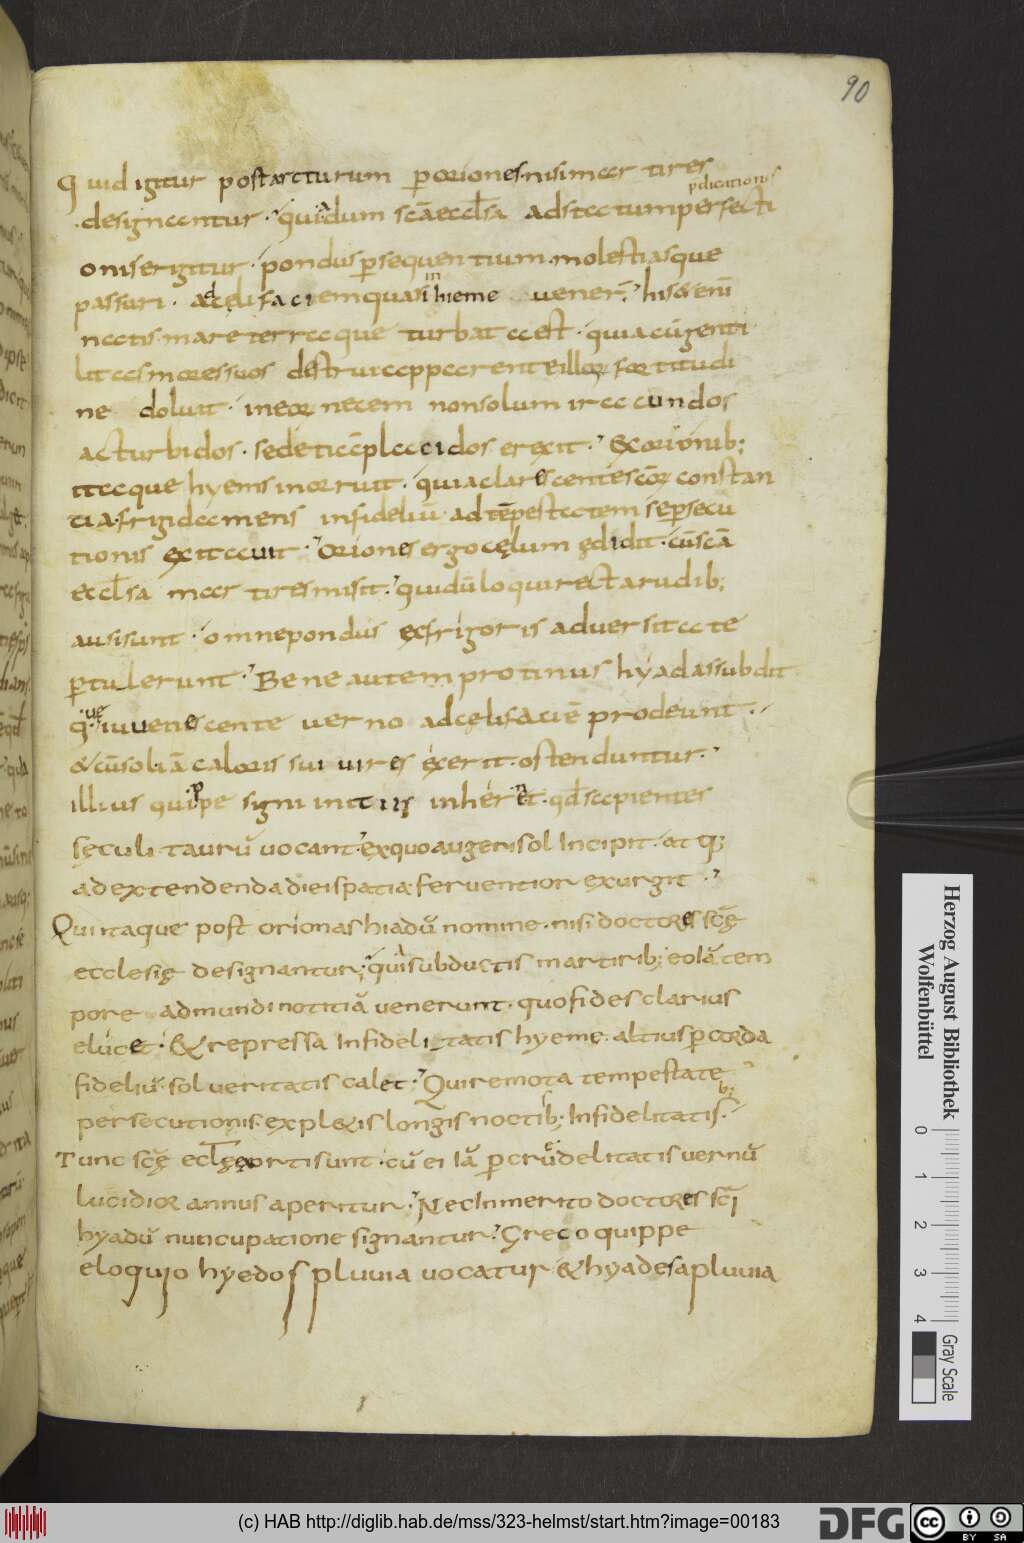 90
Quid igitur post arcturum p oriones nisi martires
designantur · quia dum scā eccłsa ad statum perfecti
pdicationis
onis erigitur · pondus psequentium molestiasque
passuri · ad cęli faciem quasi in hieme vener̄ · his & eni
natis mare terraque turbata est · quia cū genti
litas mores suos destrui apparente illoꝝ fortitudi
ne doluit · in eoꝝ necem non solum iracundos
ac turbidos · sed etiā placidos erexit · Ex orionib;
itaque hyems inorruit · quia clarescente scōꝝ constan
tia · frigida mens infideliū · ad tēpestatem se psecu
tionis excitavit · Oriones ergo cęlum ędidit · cū scā
eccłsa martires misit · qui dū loqui recta rudib;
ausi sunt · omne pondus ex frigoris adversitate
ptulerunt · Bene autem protinus hyadas subdit
q: ue iuvenescente verno ad cęli faciē prodeunt ·
& cū sol iā caloris sui vires exerit · ostenduntur ·
illius quippe signi initiis inherent · qđ sapientes
sęculi taurū vocant · ex quo augeri sol incipit · atq;
ad extendenda diei spatia ferventior exurgit ·
Qui itaque post orionas hiadū nomine · nisi doctores scę̄
ecclesię designantur; qui subductis martirib; eo iā tem
pore ad mundi notitiā venerunt · quo fides clarius
elucet · & repressa infidelitatis hyeme · altius p corda
fideliū · sol veritatis calet; Qui remota tempestate
persecutionis · expletis longis noctib; infidelitatis ·
Tunc scę̄ eccłę orti sunt · cū ei iā p crudelitatis vernū
lucidior annus aperitur · Nec inmerito doctores scī
hyadū nuncupatione signantur · Gręco quippe
eloquio hyedos pluvia vocatur & hyades a pluvia
Herzog August Bibliothek
Wolfenbüttel
0 1 2 3 4
Gray Scale
(c) HAB http://diglib.hab.de/mss/323-helmst/start.htm?image=00183
DFG
cc BY SA